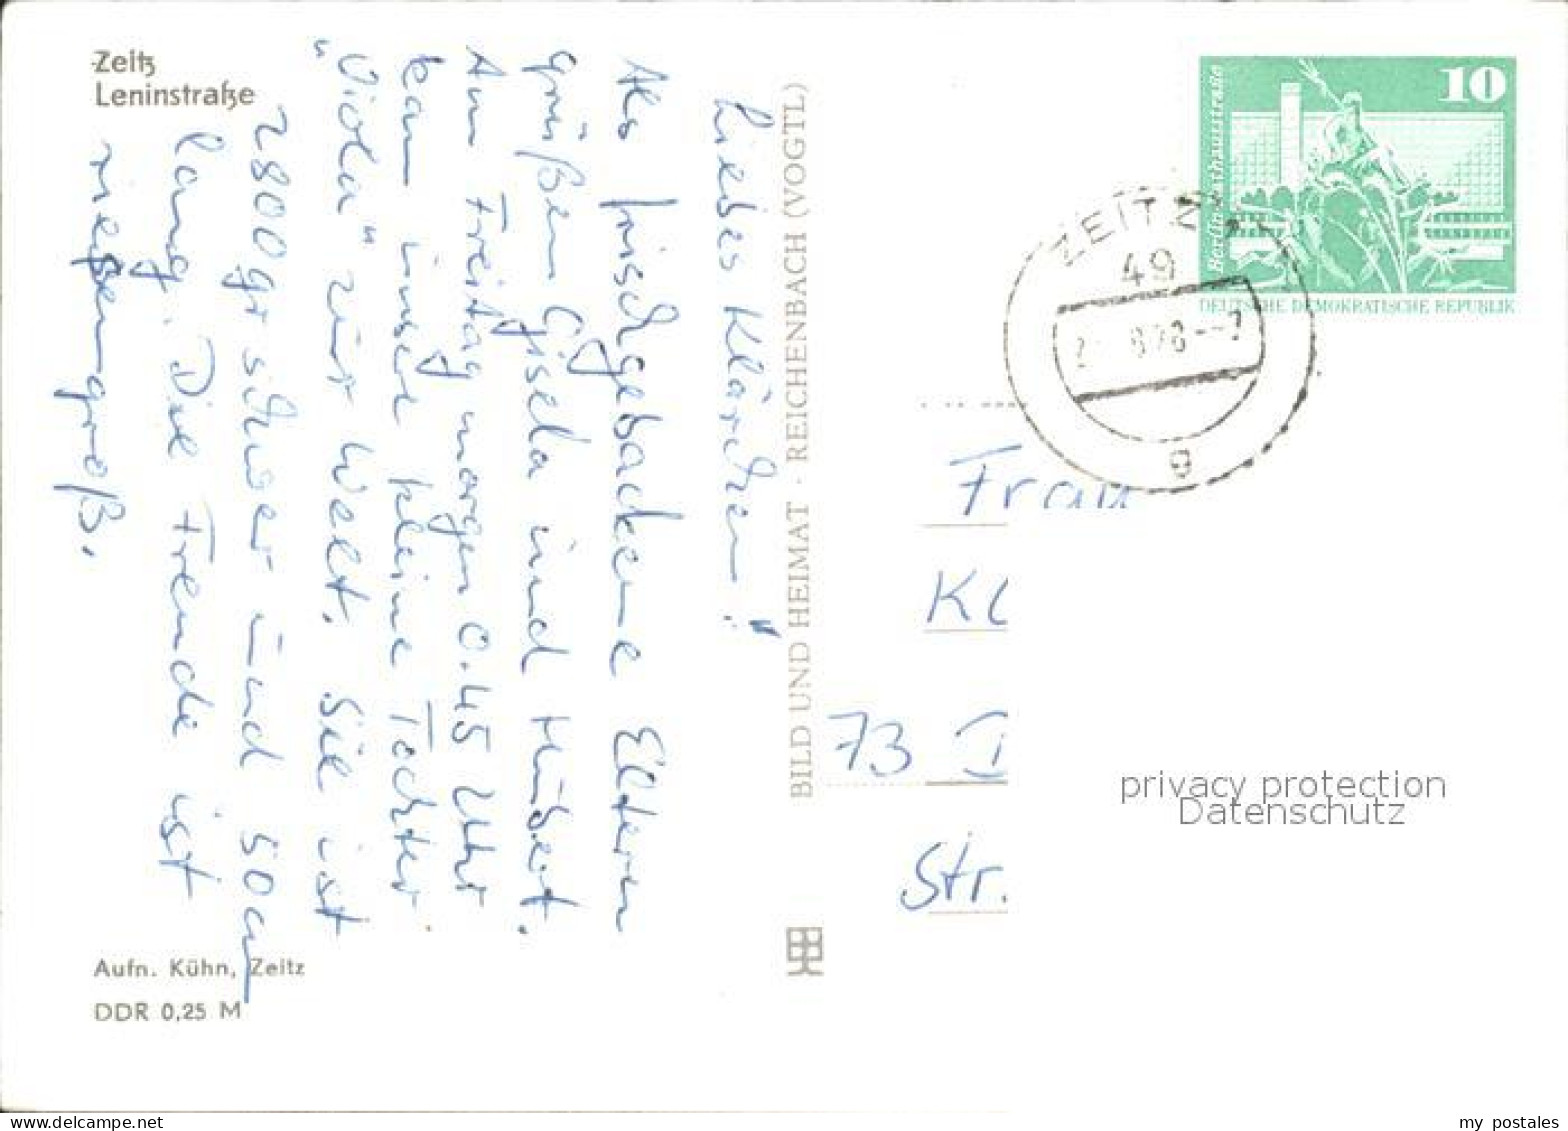 Zeitz
Leninstraße
Liebes Klärchen!
Als frischgebackene Eltern
grüßen Gisela und Hubert.
Am Freitag morgen 0.45 Uhr
kam unsere kleine Tochter
"Viola" zur Welt. Sie ist
2800 gr schwer und 50 cm
lang. Die Freude ist
riesengroß.
Aufn. Kühn, Zeitz
DDR 0,25 M
BILD UND HEIMAT · REICHENBACH (VOGTL)
10
Berlin, Rathausstraße
DEUTSCHE DEMOKRATISCHE REPUBLIK
ZEITZ
49
g
Frau
Kl
73
Str.
privacy protection
Datenschutz
www.delcampe.net
my_postales